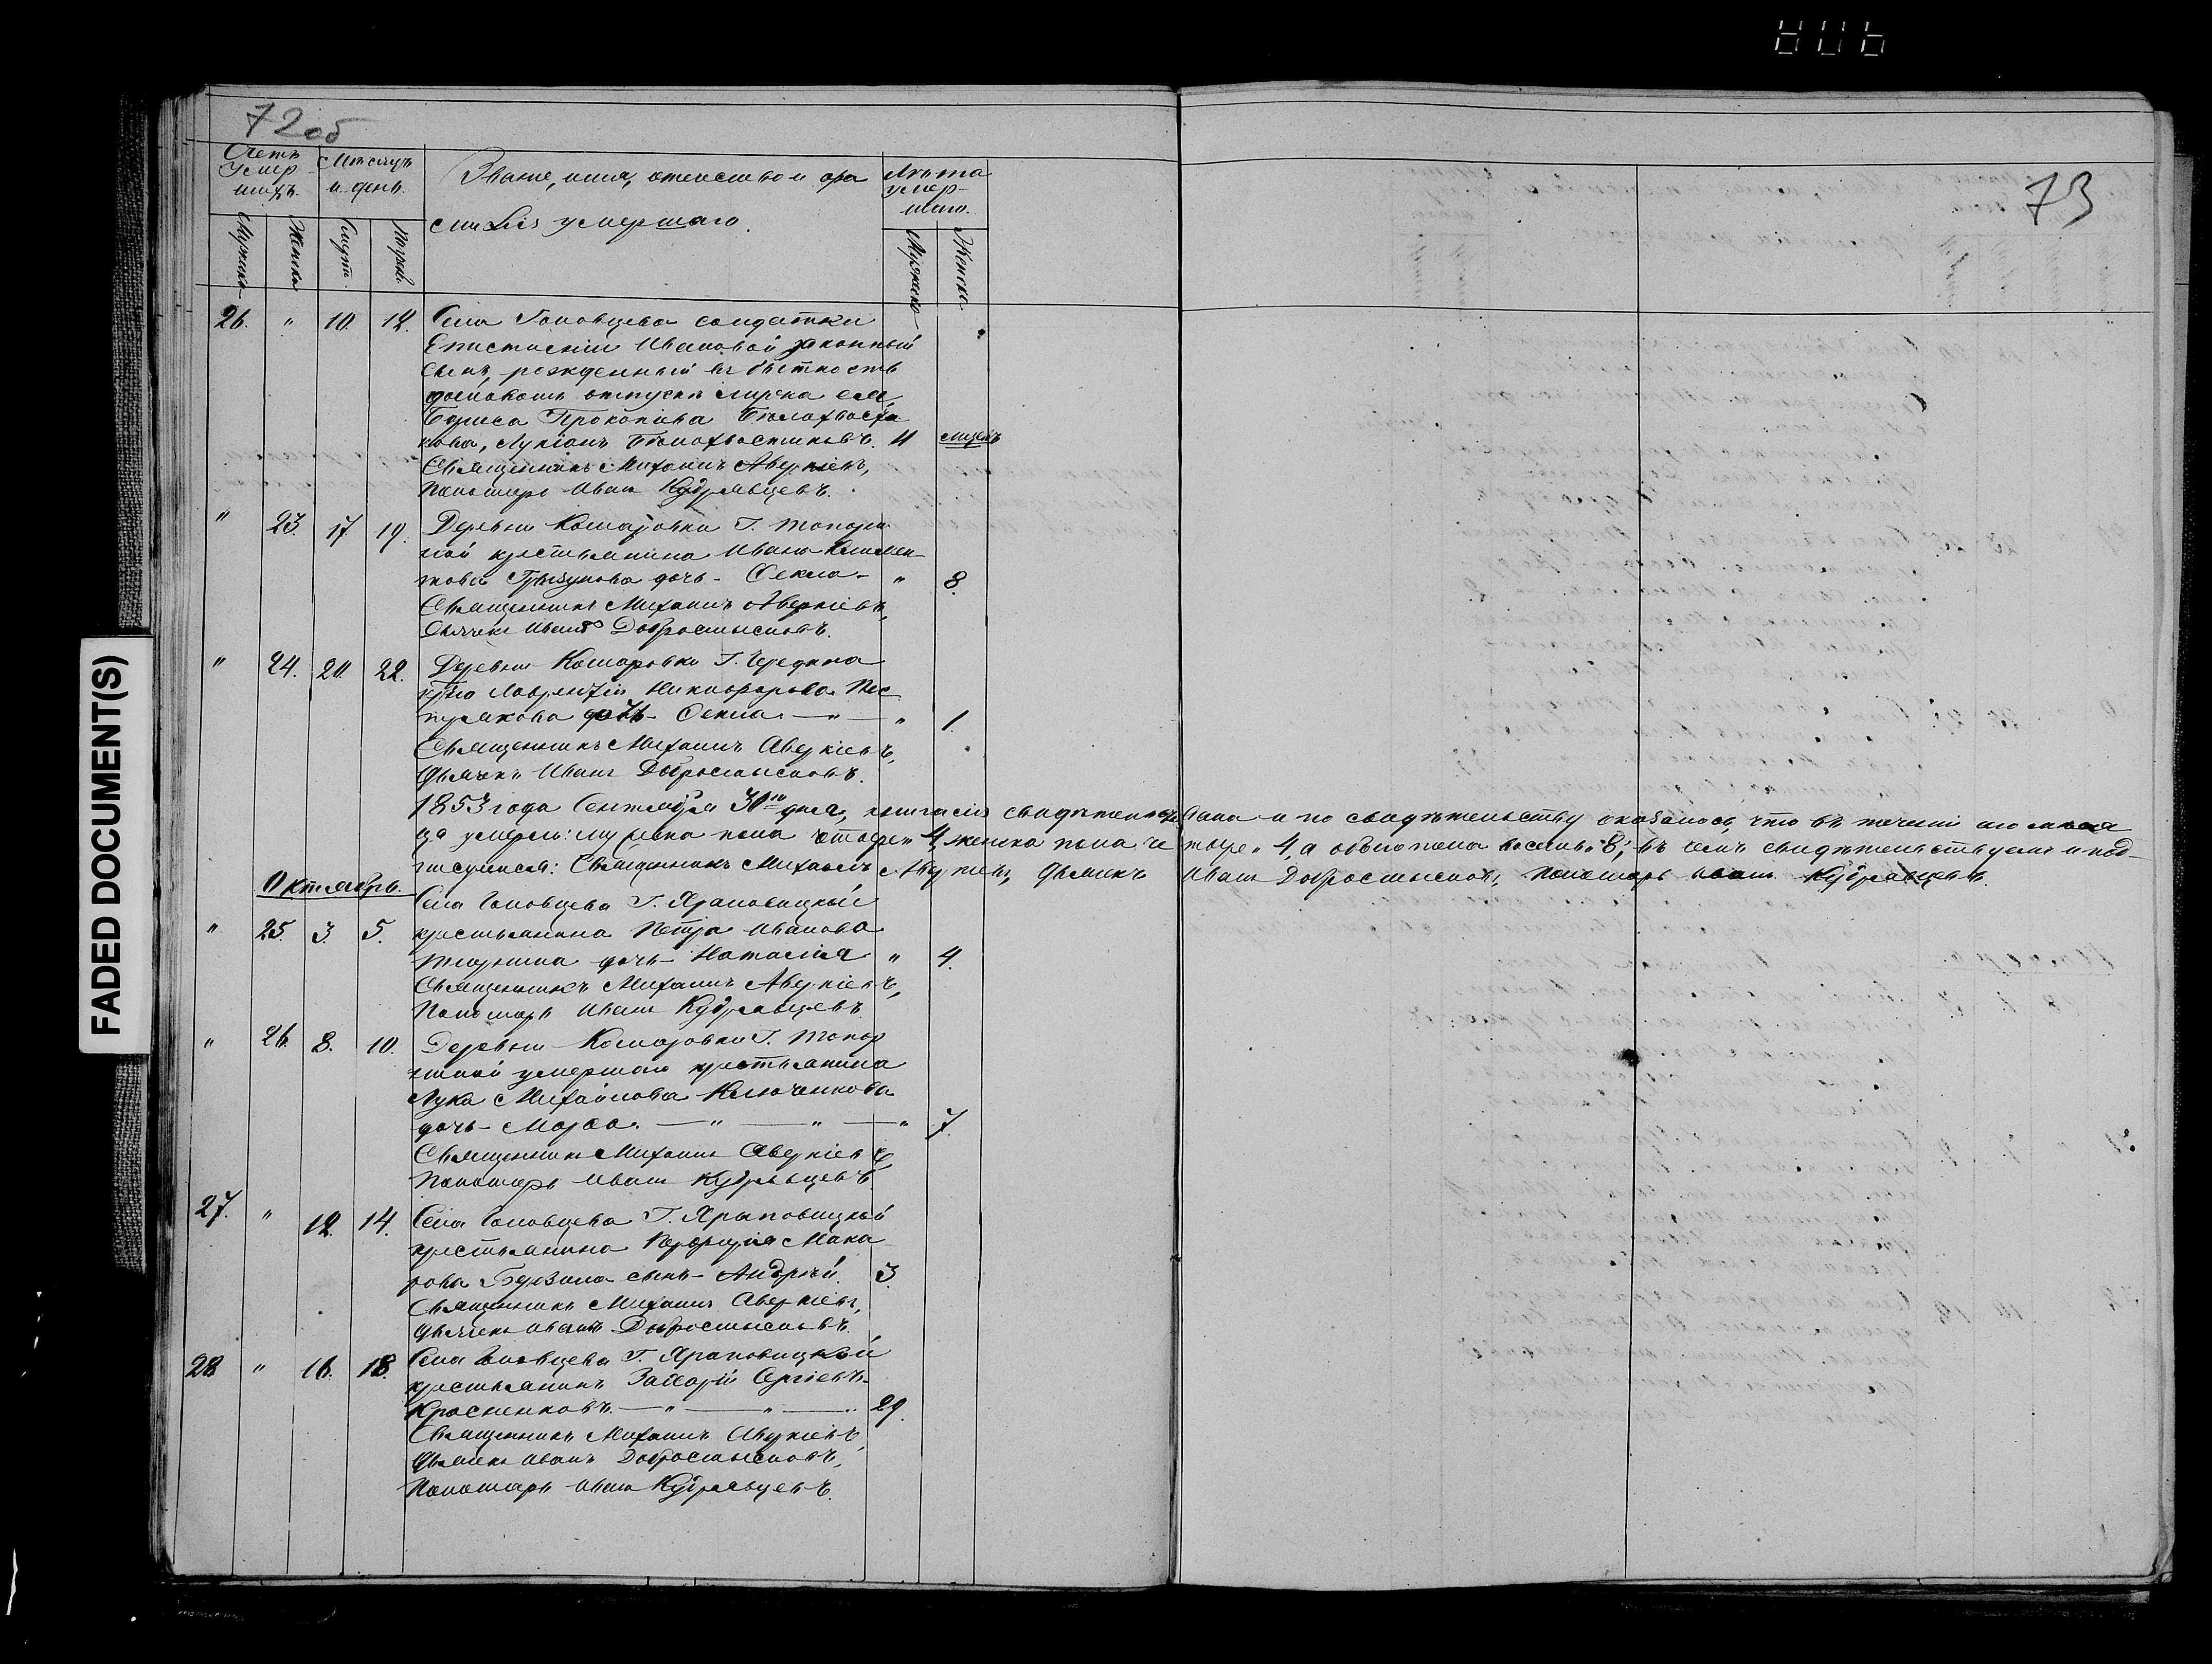 72об
Счетъ умер-
шихъ.
Мѣсяцъ
и день.
Званіе, имя, отечество и фа
милія умершаго.
Лѣта
умер-
шаго.
Мужеска
Женска
Смерт.
Погреб.
Мужеска
Женска
73
26. " 10. 12. Села Головцева солдатки
Епистиміи Ивановой законный
сынъ, рожденный въ бытность
домовомъ отпуску мужа ея,
Бориса Прокопіева Бѣлохвости
кова, Лукіанъ Бѣлохвостиковъ. 11 мѣсяц.
Священникъ Михаилъ Аверкіевъ,
Пономарь Иванъ Кудрявцевъ.
" 23. 17. 19. Деревни Комаровки Г. Топори
ной крестьянина Ивана Климен-
това Грызунова дочь - Ѳекла - " 8.
Священникъ Михаилъ Аверкіевъ,
Дьячекъ Иванъ Добросмысловъ.
" 24. 20. 22. Деревни Комаровки Г. Чередина
Лаврентія Никифорова Пес
трякова дочь - Ѳекла. — " — " 1.
Священникъ Михаилъ Аверкіевъ,
Дьячекъ Иванъ Добросмысловъ.
1853 года Сентября 30го дня, книга сія свидѣтельствована и по свидѣтельству оказалось, что въ теченіи сего мѣся
ца умерло: мужеска пола четыре " 4, женска пола че тыре " 4, а обоего пола восемь " 8; въ чемъ свидѣтельствуемъ и под-
писуемся: Священникъ Михаилъ Аверкіевъ, Дьячекъ Иванъ Добросмысловъ, Пономарь Иванъ Кудрявцевъ.
Октябрь.
Села Головцева Г. Храповицкой
" 25. 3. 5. крестьянина Петра Иванова
дочь - Наталія " 4.
Священникъ Михаилъ Аверкіевъ,
Пономарь Иванъ Кудрявцевъ.
" 26. 8. 10. Деревни Комаровки Г. Топор
ниной умершаго крестьянина
Луки Михайлова Ключенкова
дочь - Марѳа. — " — " — " 7.
Священникъ Михаилъ Аверкіевъ,
Пономарь Иванъ Кудрявцевъ.
27. " 12. 14. Села Головцева Г. Храповицкой
крестьянина Порфирія Мака
рова Березина сынъ - Андрей. 3.
Священникъ Михаилъ Аверкіевъ,
Дьячекъ Иванъ Добросмысловъ.
28. " 16. 18. Села Головцева Г. Храповицкой
крестьянинъ Захарій Сергіевъ
Красненковъ. — " — " — 29.
Священникъ Михаилъ Аверкіевъ,
Дьячекъ Иванъ Добросмысловъ,
Пономарь Иванъ Кудрявцевъ.
FADED DOCUMENT(S)